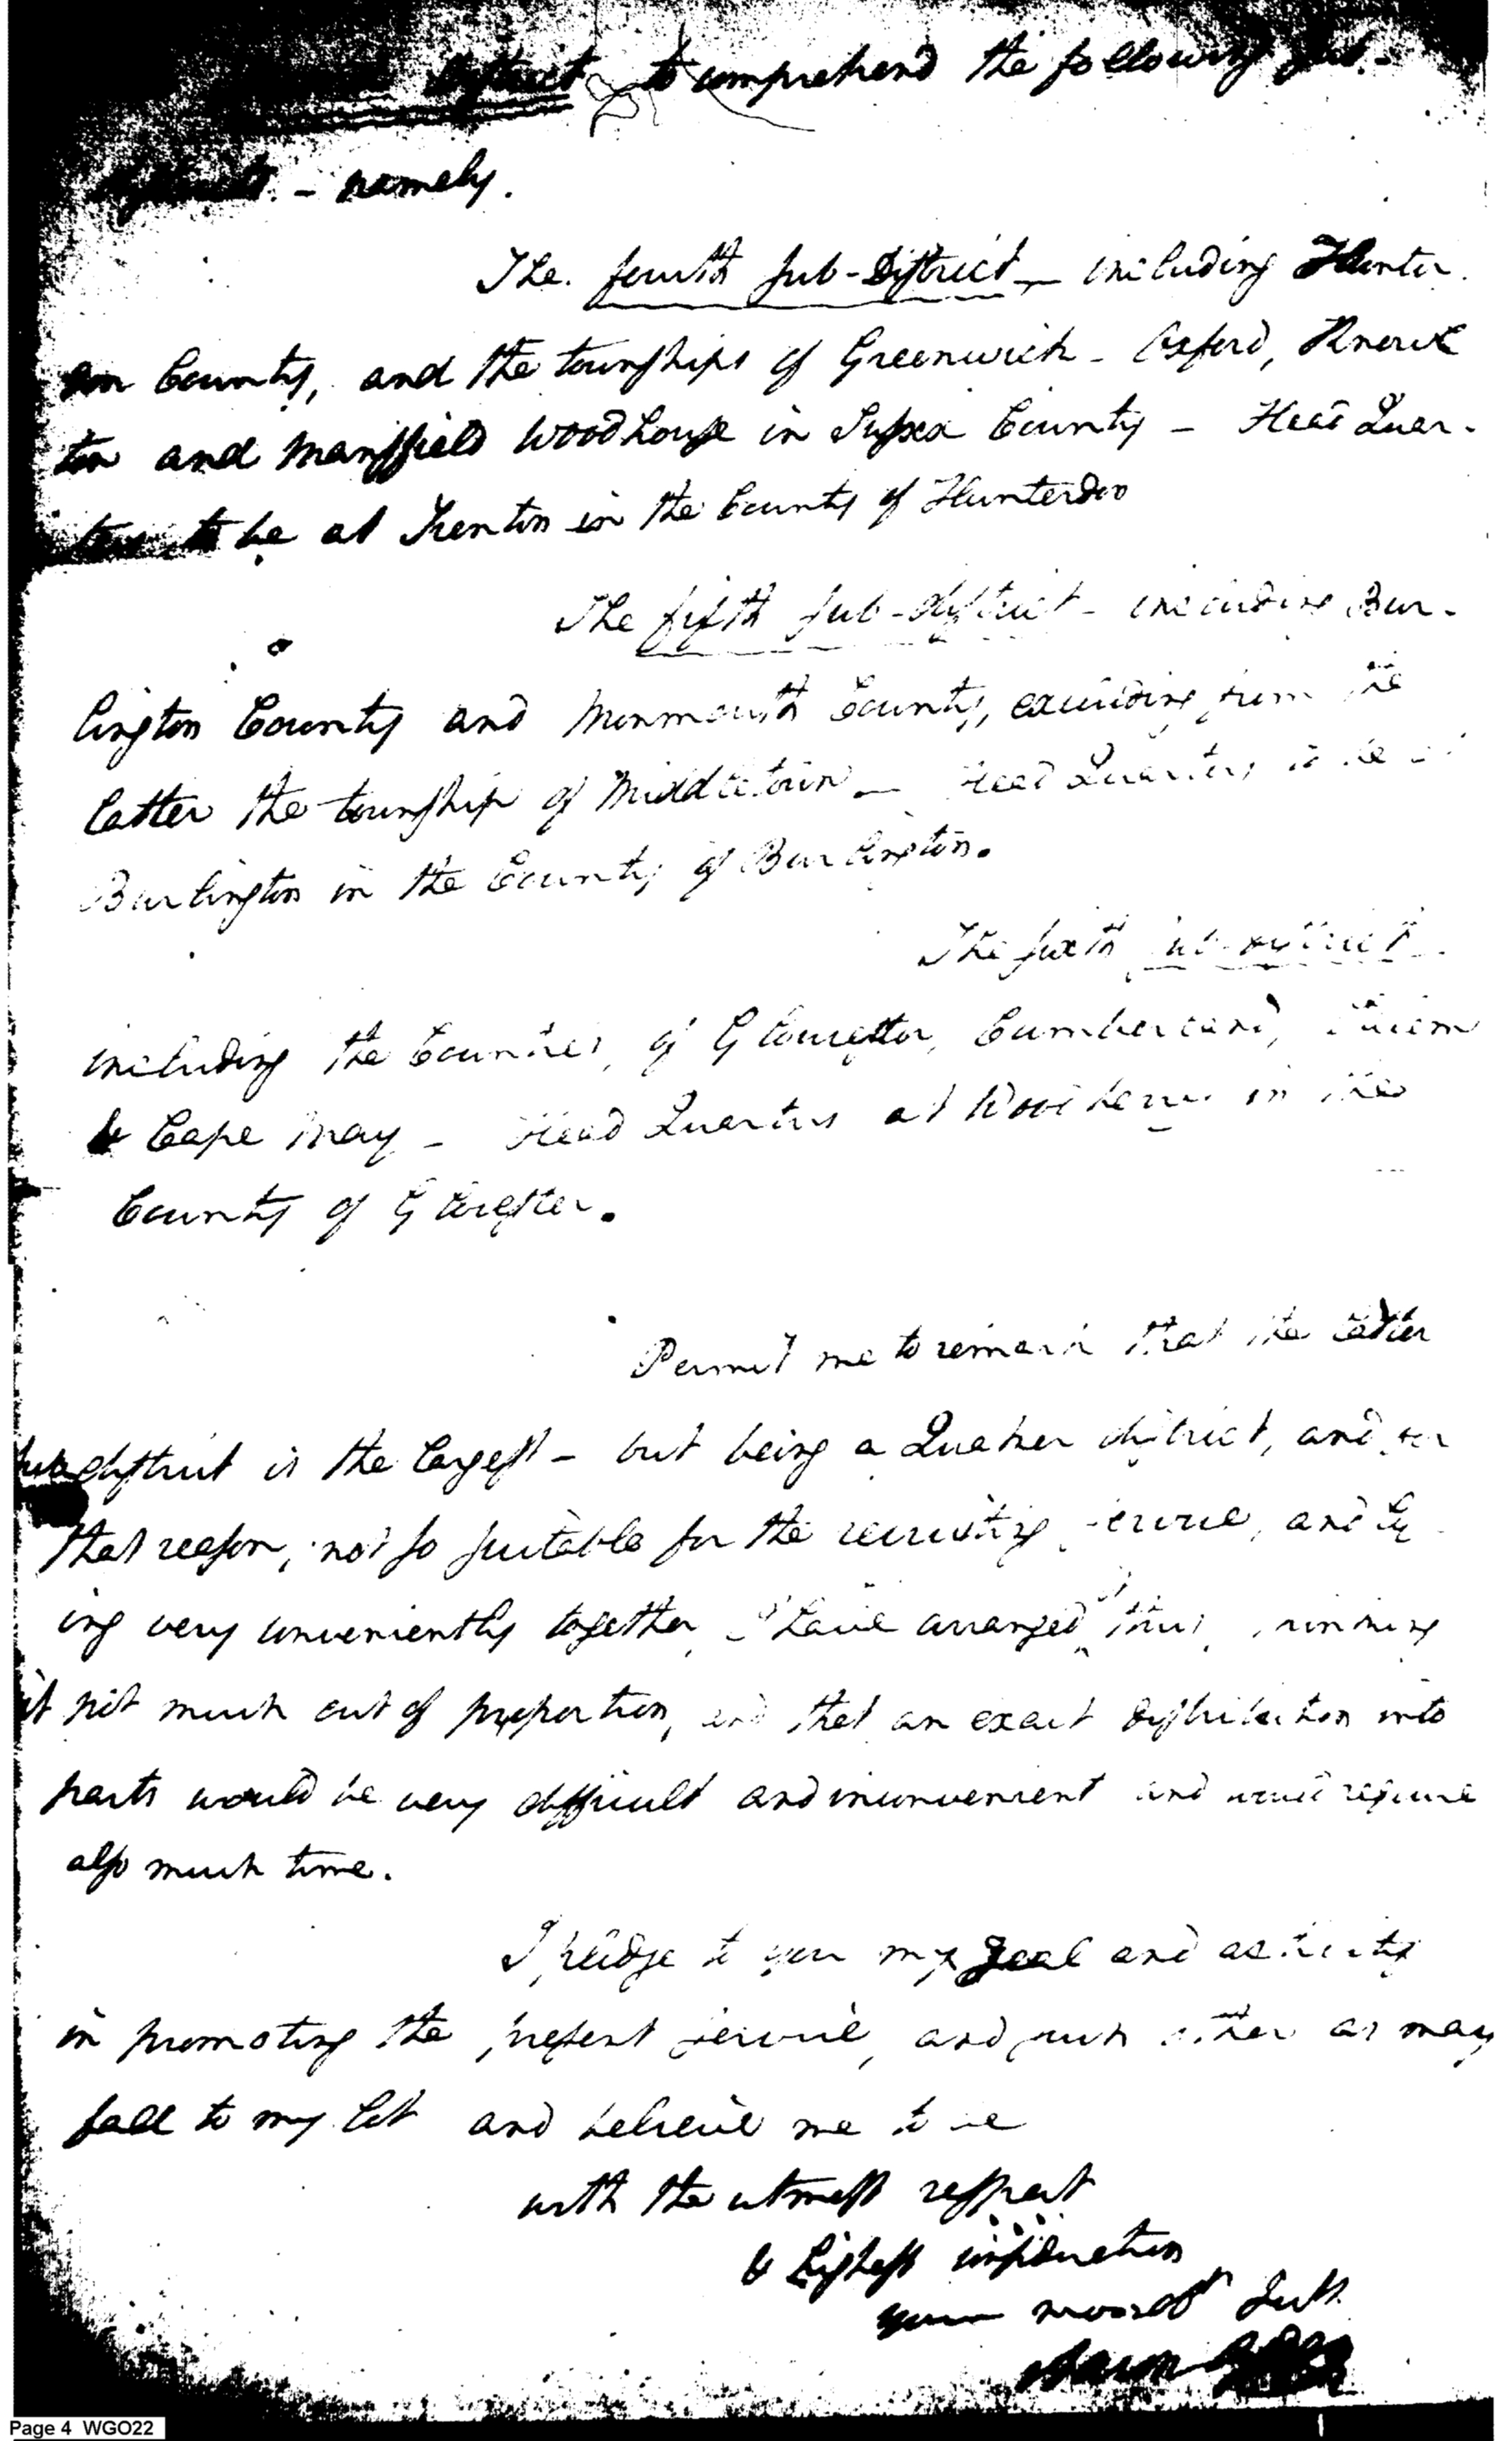 District to comprehend the following sub-
districts - namely.
The fourth sub-District - including Hunter
don County, and the townships of Greenwich - Oxford, Knowl
ton and Mansfield Woodhouse in Sussex County - Head Quar-
ters to be at Trenton in the County of Hunterdon
The fifth sub-district - including Bur-
lington County and Monmouth County, excluding from the
latter the township of Middletown - Head Quarters to be at
Burlington in the County of Burlington.
The sixth sub-district
including the Counties of Gloucester, Cumberland, Salem
& Cape May - Head Quarters at Woodberry in the
County of Gloucester.
Permit me to remark that the latter
sub district is the largest - but being a Quaker district, and for
that reason, not so suitable for the recruiting service, and ly
ing very conveniently together I have arranged thus, thinking
it not much out of proportion, and that an exact distribution into
parts would be very difficult and inconvenient and would require
also much time.
I pledge to you my zeal and activity
in promoting the present service, and such other as may
fall to my lot and believe me to be
with the utmost respect
& highest consideration
your most obt Servt
Aaron
Page 4 WGO22